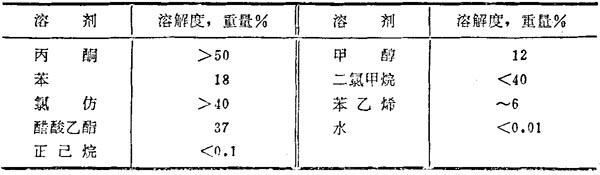 溶剂 溶解度，重量% 溶剂 溶解度，重量%
丙酮 >50 甲醇 12
苯 18 二氯甲烷 <40
氯仿 >40 苯乙烯 ~6
醋酸乙酯 37 水 <0.01
正己烷 <0.1